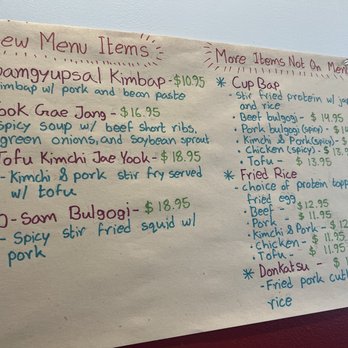 ew Menu Items
amgyupsal Kimbap - $10.95
kimbap w/ pork and bean paste
ook Gae Jang - $16.95
spicy soup w/ beef short ribs,
green onions, and soybean sprout
Tofu Kimchi Jae Yook - $18.95
- Kimchi & pork stir fry served
w/ tofu
O-Sam Bulgogi - $18.95
- Spicy stir fried squid w/
pork
More Items Not On Men
* Cup Bap
stir fried protein w/
and rice
- Beef bulgogi - $ 14.95
- Pork bulgogi (spicy) - $
- Kimchi & Pork (spicy) - $
- Chicken (spicy) - $ 13.
- Tofu - $ 13.95
* Fried Rice
- choice of protein topp
fried egg
- Beef - $12.95
- Pork - $ 11.95
- Kimchi & Pork - $
- Chicken - $ 11.95
- Tofu - $ 11.95
* Donkatsu - $
- Fried pork cutl
rice